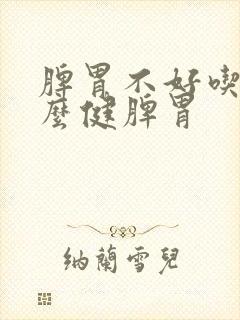 脾胃不好喫
麼健脾胃
納蘭雪兒